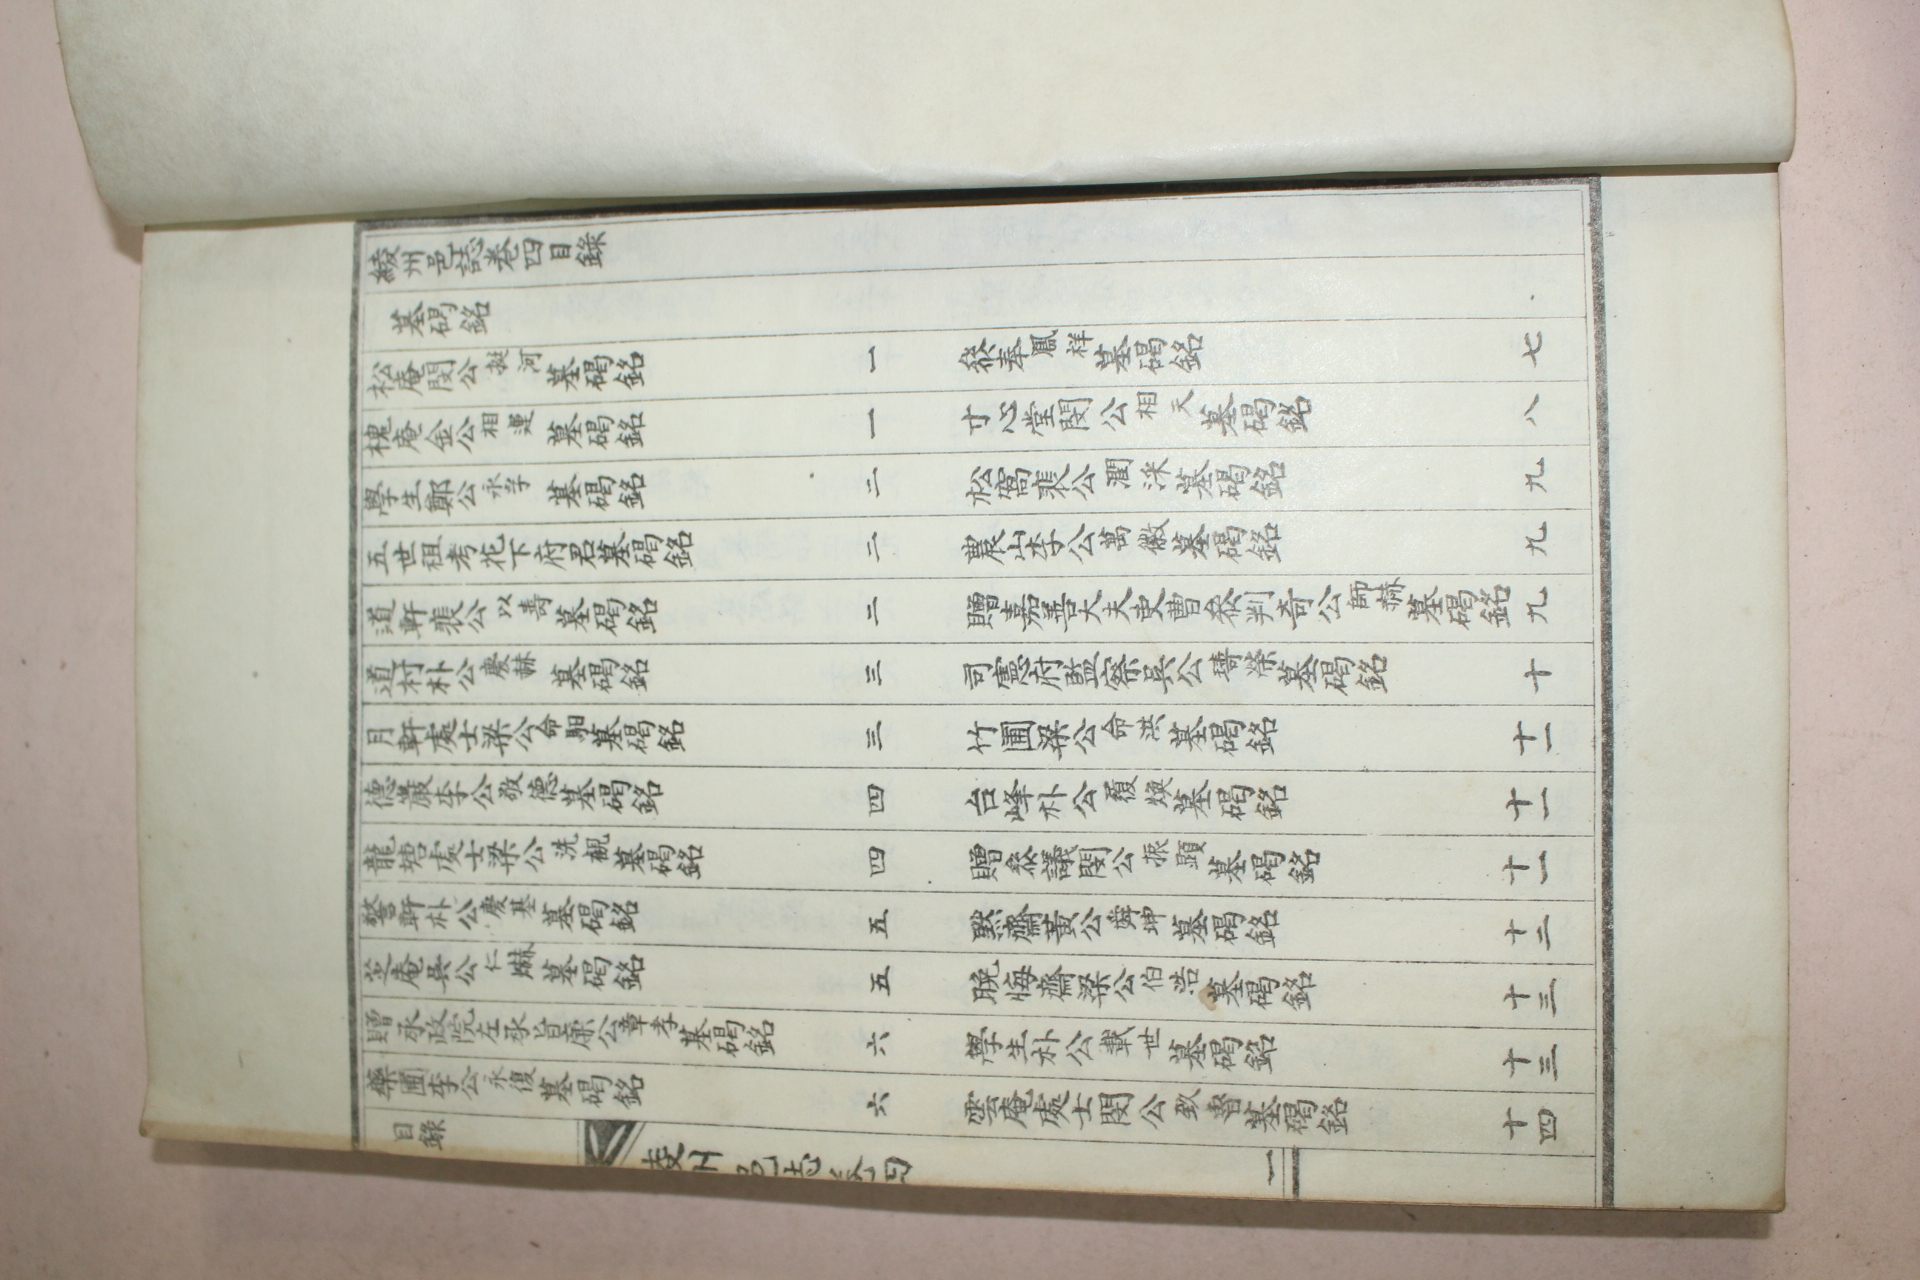 綾州邑誌卷四目錄
墓碣銘
松庵閔公挺河墓碣銘 一
槐庵金公相運墓碣銘 一
學生鄭公永孚墓碣銘 二
五世祖考花下府君墓碣銘 二
道軒裵公以壽墓碣銘 二
道村朴公慶赫墓碣銘 三
月軒處士梁公命馹墓碣銘 三
德巖李公敬德墓碣銘 四
龍塘處士梁公洗觀墓碣銘 四
警軒朴公慶基墓碣銘 五
芝庵吳公仁爀墓碣銘 五
贈承政院左承旨廉公章孝墓碣銘 六
藥圃李公永復墓碣銘 六
叅奉鳳祥墓碣銘 七
寸心堂閔公相天墓碣銘 八
松窩裵公潤深墓碣銘 九
農山李公萬徽墓碣銘 九
贈嘉善大夫吏曹叅判奇公師赫墓碣銘 九
司憲府監察吳公璹榮墓碣銘 十
竹圃梁公命洪墓碣銘 十一
台峰朴公履煥墓碣銘 十一
贈叅議閔公振顯墓碣銘 十一
默齋黃公舜坤墓碣銘 十二
晩悔齋梁公伯浩墓碣銘 十三
學生朴公載世墓碣銘 十三
雲庵處士閔公致魯墓碣銘 十四
目錄
綾州邑誌卷四
一